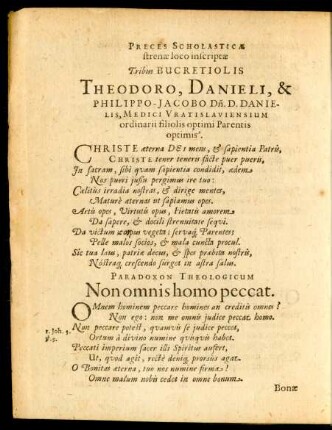 PRECES SCHOLASTICÆ
strenæ loco inscriptæ
Tribus BUCRETIOLIS
THEODORO, DANIELI, &
PHILIPPO-JACOBO Dñ. D. DANIE-
LIS, MEDICI VRATISLAVIENSIUM
ordinarii filiolis optimi Parentis
optimis.
CHRISTE æterna DEI mens, & sapientia Patris,
CHRISTE tener teneris facte puer pueris,
In sacram, sibi quam sapientia condidit, ædem
Nos pueri jussu pergimus ire tuo:
Cælitus irradia nostras, & dirige mentes,
Maturè æternas ut sapiamus opes.
Artis opes, Virtutis opus, Pietatis amorem
Da sapere, & docili strenuitate sequi.
Da victum corpus vegetet: servaq; Parentes:
Pelle malos socios, & mala cuncta procul.
Sic tua laus, patriæ decus, & spes probata nostris,
Nostraq; crescendo surget in astra salus.
PARADOXON THEOLOGICUM
Non omnis homo peccat.
O Muem hominem peccare homines an creditis omnes?
Non ego: non me omnis judice peccat. homo.
1. Joh. 3. Non peccare potest, quamvis se judice peccet,
v. 9. Ortum à divino numine quisquis habet.
Peccati imperium sacer illi Spiritus aufert,
Ut, quod agit, rectè deniq; prorsus agat.
O Bonitas æterna, tuæ nos numine firma!
Omne malum nobis cedet in omne bonum.
Bonæ